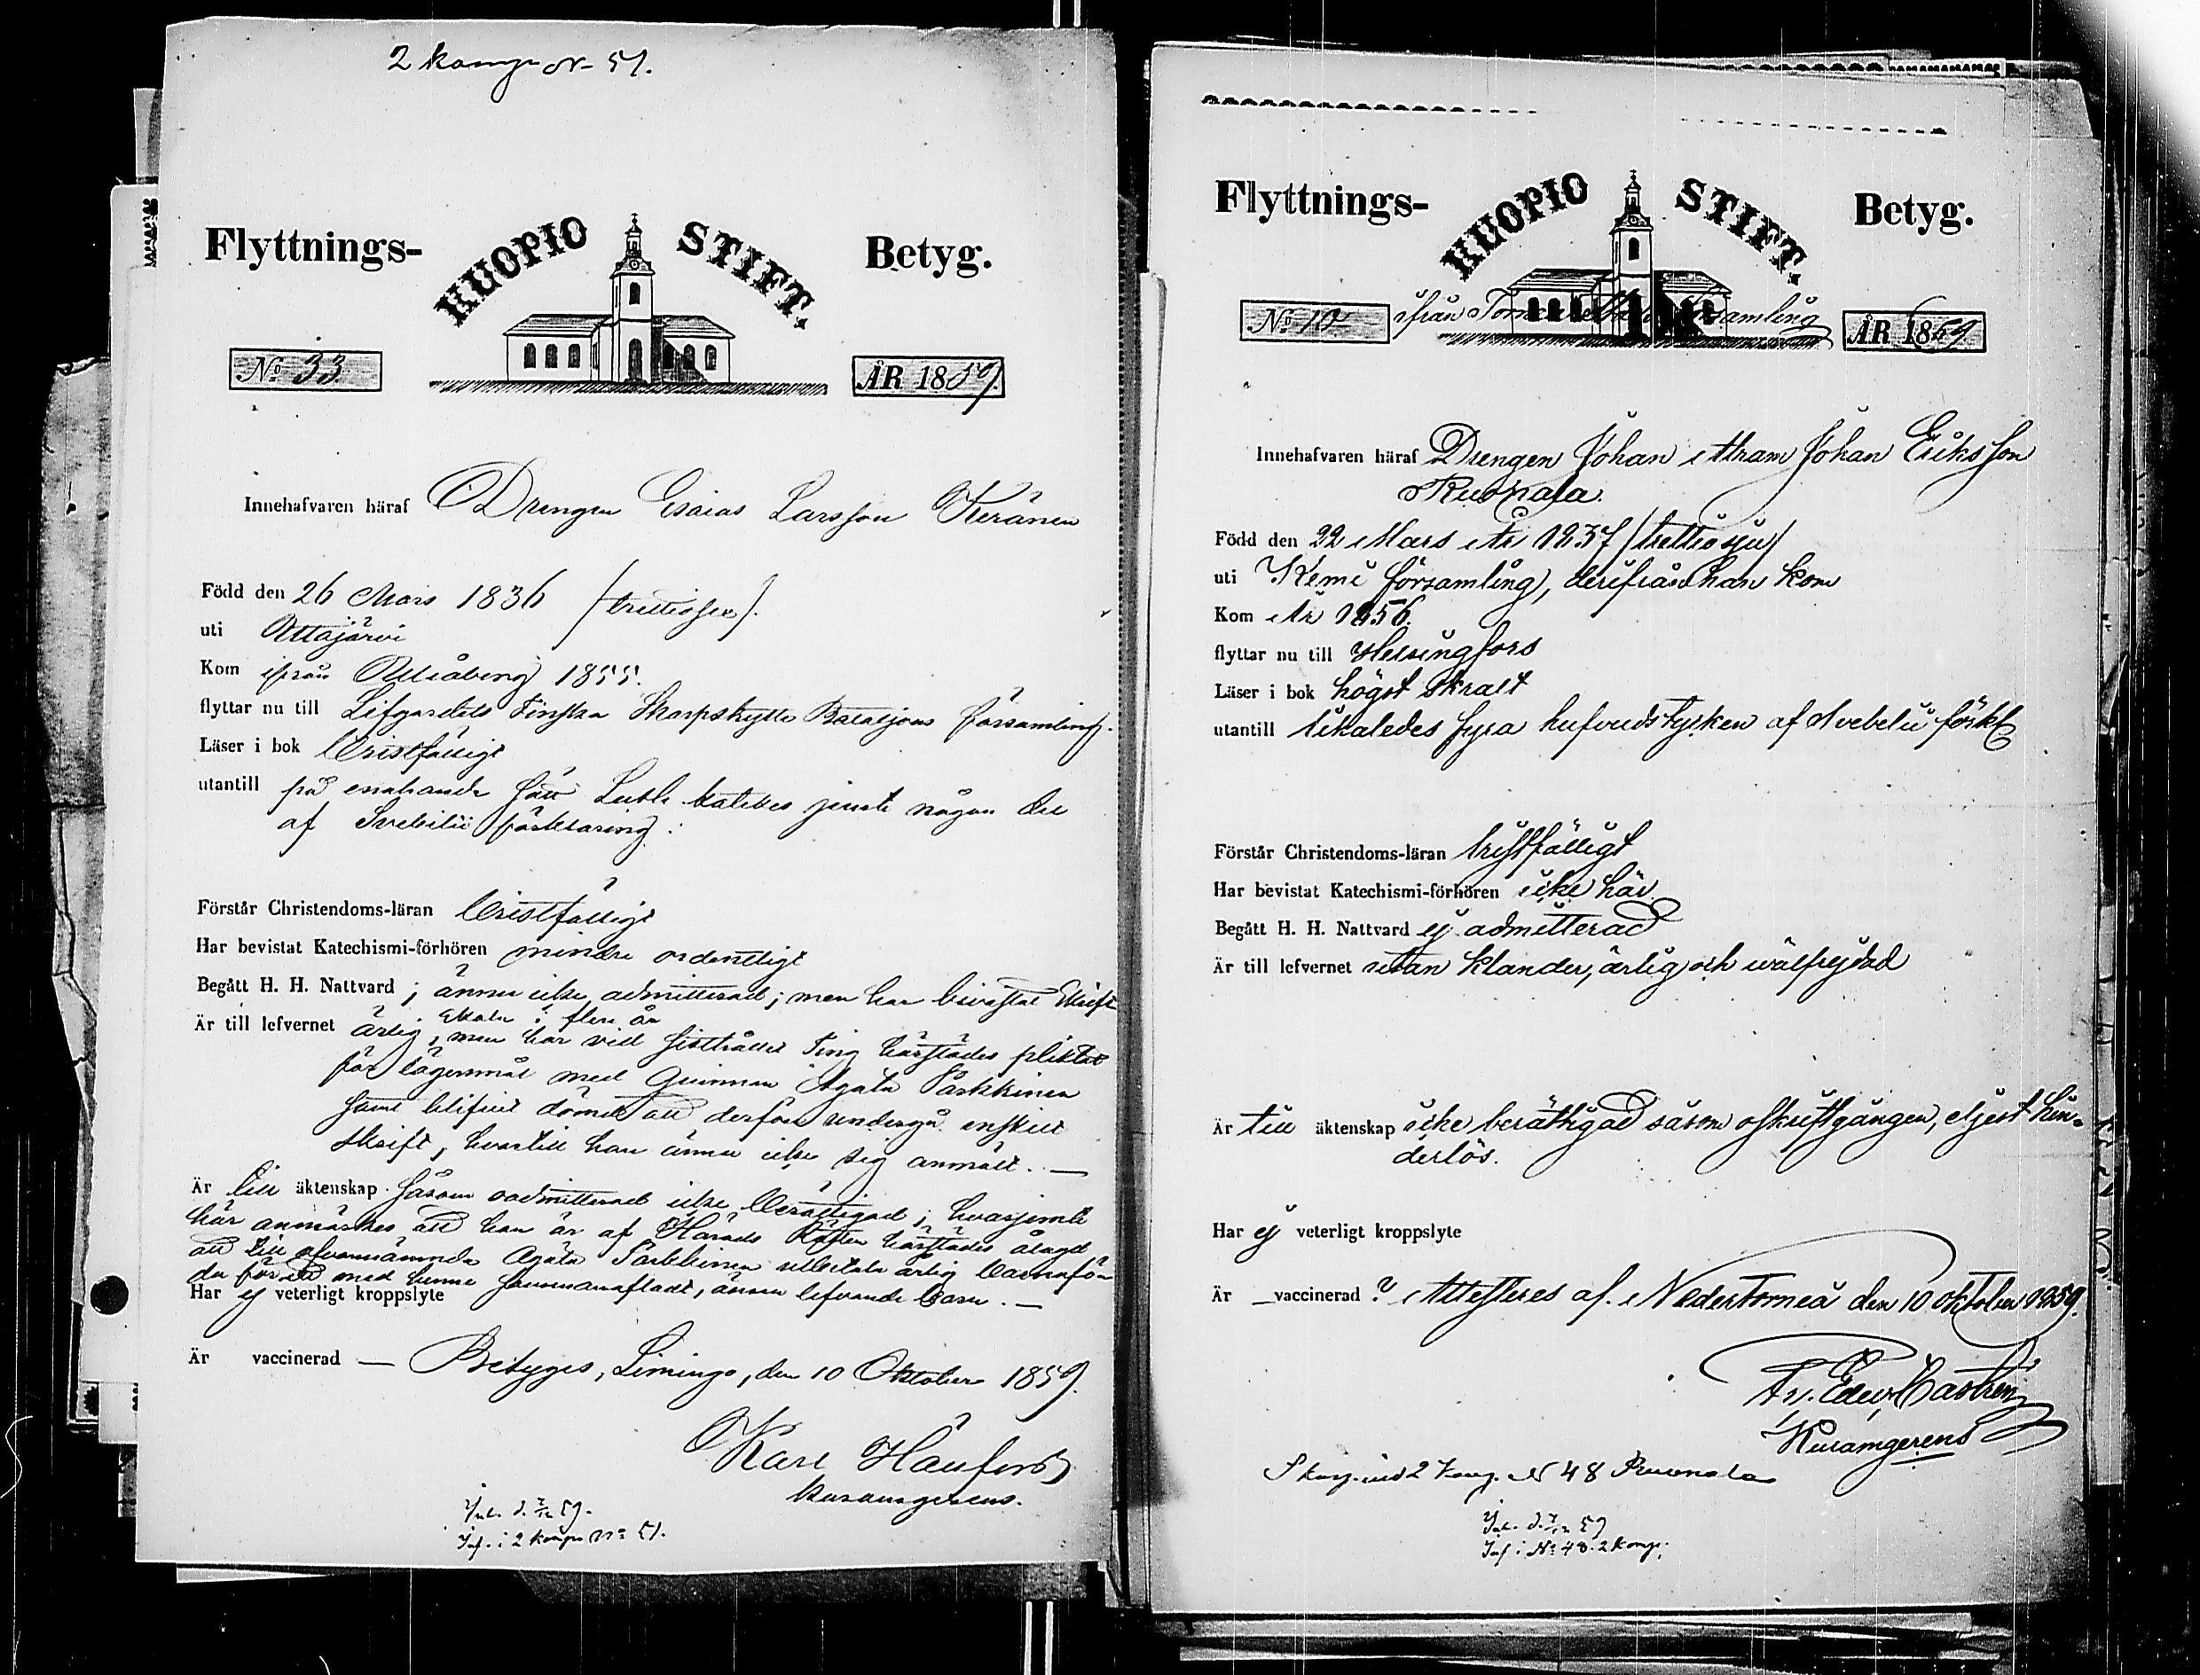 2 komp N 51.
Flyttnings- KUOPIO STIFT. Betyg.
No 33. ÅR 1859.
Innehafvaren häraf Drengen Esaias Larsson Keränen
Född den 26 Mars 1836 /trettiosex/.
uti Uttajärvi
Kom ifrån Uleåborg 1855.
flyttar nu till Lifgardets Finska Skarpskytte Bataljons församling.
Läser i bok Bristfälligt
utantill på enahanda sätt Luth. katekes jemte någon del
af Svebilii förklaring.
Förstår Christendoms-läran Bristfälligt
Har bevistat Katechismi-förhören mindre ordentligt
Begått H. H. Nattvard ; ännu icke admitterad; men har bivistat Skrift
skola i flere år
Är till lefvernet ärlig, men har vid sisthållet Ting härstädes pliktat
för lägersmål med Qvinnan Agata Parkkinen
samt blifvit dömd att derföre undergå enskilt
skrift, hvartill han ännu icke sig anmält. —
Är till äktenskap såsom oadmitterad icke berättigad; hvarjemte
här anmärkes att han är af Härads Rätten härstädes ålagd
att till ofvannämnda Agata Parkkinen utbetala årlig barnafö-
da för ett med henne sammanafladt, ännu lefvande barn. —
Har ej veterligt kroppslyte
Är vaccinerad — Betyges, Limingo, den 10 Oktober 1859.
Karl
Kuramgerens.
Inl. d. 7/12 59.
Inf. i 2 komp No 51.
Flyttnings- KUOPIO STIFT. Betyg.
No 10 ifrån Torneå församling ÅR 1859
Innehafvaren häraf Drengen Johan Abram Johan Eriksson
Ruonala.
Född den 22 Mars År 1837 /trettiosju/
uti Kemi församling, derifrån han kom
Kom År 1856.
flyttar nu till Helsingfors
Läser i bok högst skralt
utantill likaledes fyra hufvudstycken af Svebelii förkl
Förstår Christendoms-läran bristfälligt
Har bevistat Katechismi-förhören icke här
Begått H. H. Nattvard ej admitterad
Är till lefvernet utan klander, ärlig och wälfrejdad
Är till äktenskap icke berättigad såsom oskriftgången, eljest hin-
derlös.
Har ej veterligt kroppslyte
Är — vaccinerad ? Attesteres af. Nedertorneå den 10 oktober 1859.
Fr. Edw. Castrén
Kuramgerens
2 komp. N 48 Ruonala
Inl. d. 7/12 59
Inf. i No 48. 2 komp.